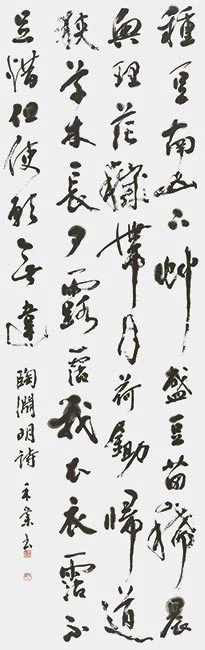 種豆南山下艸盛豆苗稀晨
興理荒穢帶月荷鋤歸道
狹草木長夕露霑我衣衣霑不
足惜但使願無違
陶淵明詩